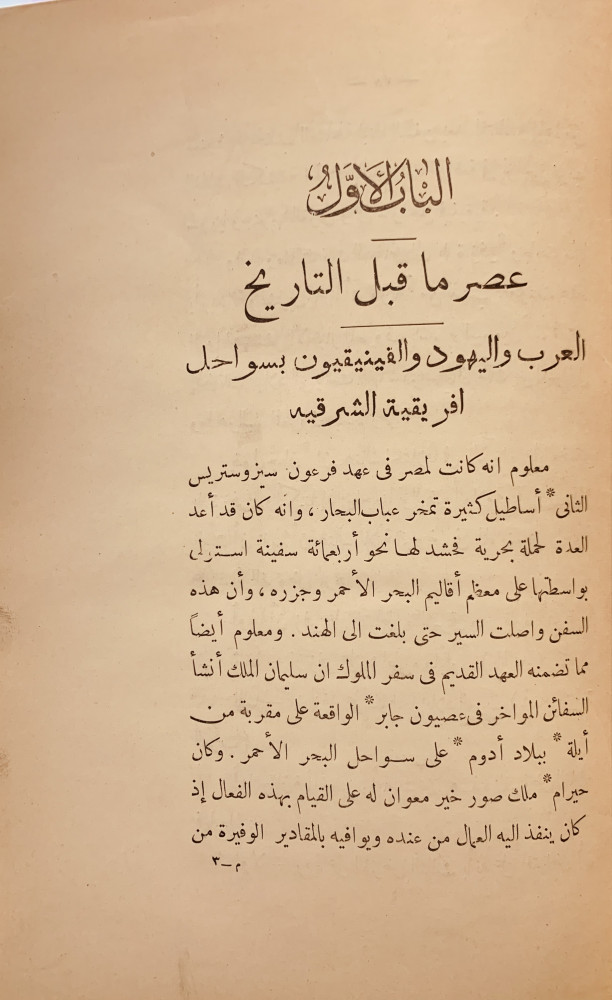 البَابُ الأَوَّلُ
عصر ما قبل التاريخ
العرب واليهود والفينيقيون بسواحل
افريقية الشرقيه
معلوم انه كانت لمصر فى عهد فرعون سيزوستريس
الثانى* أساطيل كثيرة تمخر عباب البحار ، وانه كان قد أعد
العدة لحملة بحرية فحشد لها نحو أربعمائة سفينة استولى
بواسطتها على معظم أقاليم البحر الأحمر وجزره ، وأن هذه
السفن واصلت السير حتى بلغت الى الهند . ومعلوم أيضاً
مما تضمنه العهد القديم فى سفر الملوك ان سليمان الملك أنشأ
السفائن المواخر فى عصيون جابر* الواقعة على مقربة من
أيلة* ببلاد أدوم* على سواحل البحر الأحمر . وكان
حيرام* ملك صور خير معوان له على القيام بهذه الفعال إذ
كان ينفذ اليه العمال من عنده ويوافيه بالمقادير الوفيرة من
م-٣